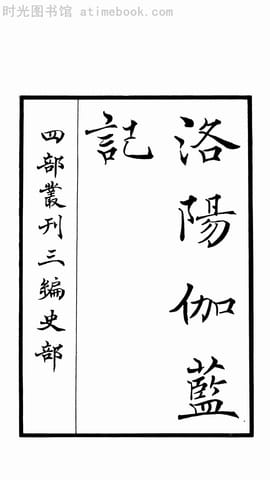 时光图书馆 atimebook.com
洛陽伽藍
記
四部叢刊三編史部